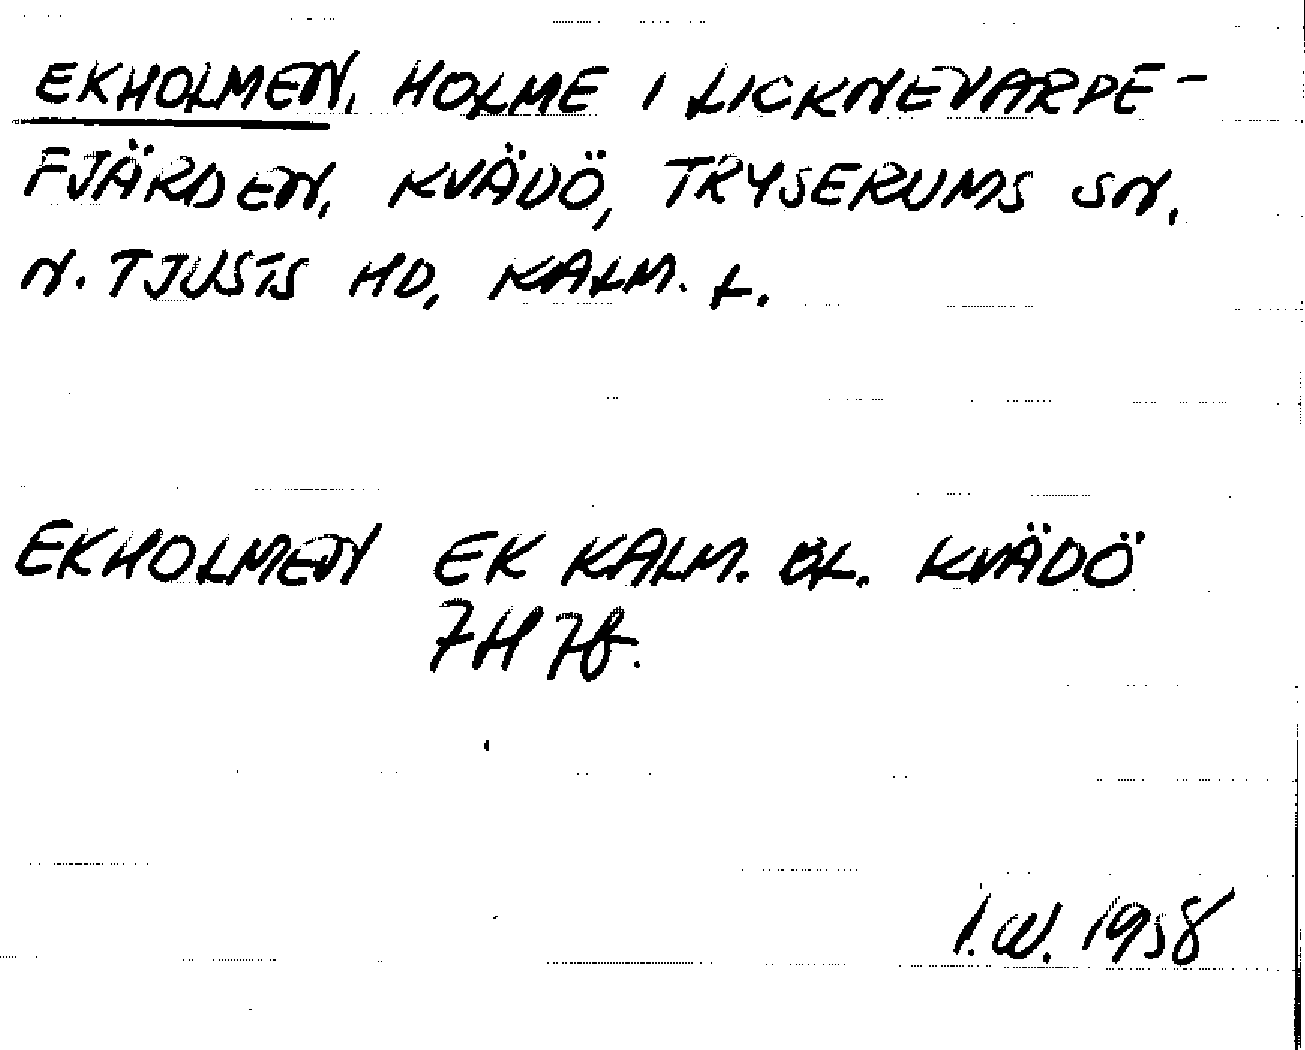 EKHOLMEN, HOLME I LICKNEVARPE-
FJÄRDEN, KVÄDÖ, TRYSERUMS SN,
N. TJUSTS HD, KALM. L.
EKHOLMEN EK KALM. BL. KVÄDÖ
7H 7f.
I.W. 1958